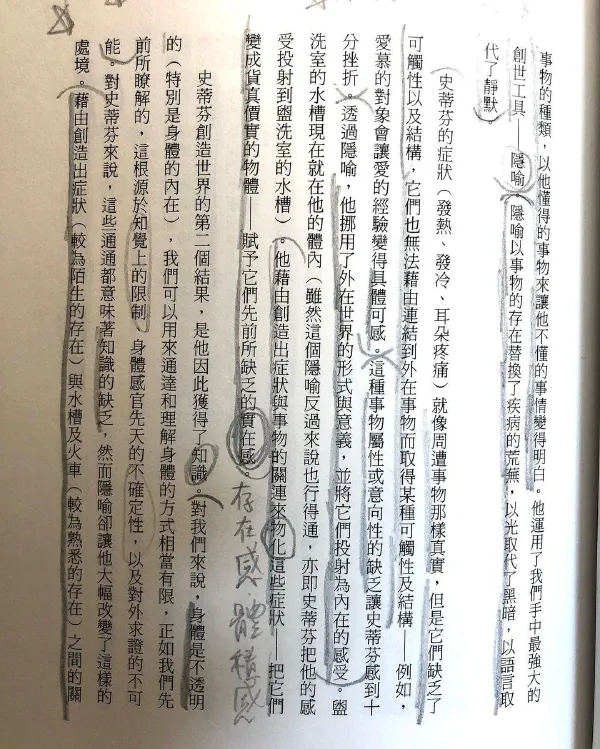 事物的種類，以他懂得的事物來讓他不懂的事情變得明白。他運用了我們手中最強大的
創世工具——隱喻。隱喻以事物的存在替換了疾病的荒蕪，以光取代了黑暗，以語言取
代了靜默。
史蒂芬的症狀（發熱、發冷、耳朵疼痛）就像周遭事物那樣真實，但是它們缺乏了
可觸性以及結構，它們也無法藉由連結到外在事物而取得某種可觸性及結構——例如，
愛慕的對象會讓愛的經驗變得具體可感。這種事物屬性或意向性的缺乏讓史蒂芬感到十
分挫折。透過隱喻，他挪用了外在世界的形式與意義，並將它們投射為內在的感受。盥
洗室的水槽現在就在他的體內（雖然這個隱喻反過來說也行得通，亦即史蒂芬把他的感
受投射到盥洗室的水槽）。他藉由創造出症狀與事物的關連來物化這些症狀——把它們
變成貨真價實的物體——賦予它們先前所缺乏的實在感。存在感．體積感
史蒂芬創造世界的第二個結果，是他因此獲得了知識。對我們來說，身體是不透明
的（特別是身體的內在），我們可以用來通達和理解身體的方式相當有限，正如我們先
前所瞭解的，這根源於知覺上的限制、身體感官先天的不確定性，以及對外求證的不可
能。對史蒂芬來說，這些通通都意味著知識的缺乏，然而隱喻卻讓他大幅改變了這樣的
處境。藉由創造出症狀（較為陌生的存在）與水槽及火車（較為熟悉的存在）之間的關